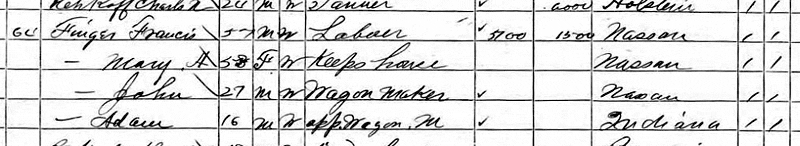 Charles 24 M W Tanner Holstein / /
64 Finger Francis 57 M W Laboer ✓ 5700 1500 Nassau / /
— Mary A 58 F W Keeps house Nassau / /
— John 27 M W Wagon Maker ✓ Nassau / /
— Adam 16 M W app. Wagon. M ✓ Indiana / /